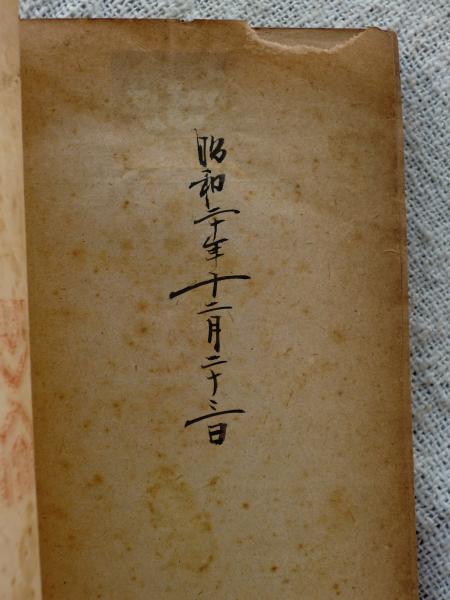 昭和二十年十二月二十三日